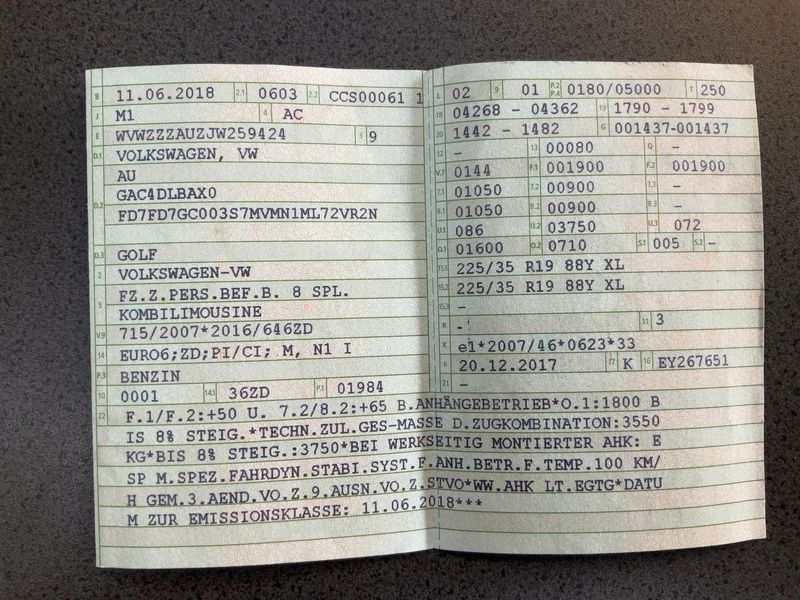 B 11.06.2018 2.1 0603 2.2 CCS00061 1
J M1 4 AC
E WVWZZZAUZJW259424 3 9
D.1 VOLKSWAGEN, VW
AU
D.2 GAC4DLBAX0
FD7FD7GC003S7MVMN1ML72VR2N
D.3 GOLF
2 VOLKSWAGEN-VW
5 FZ.Z.PERS.BEF.B. 8 SPL.
KOMBILIMOUSINE
V.9 715/2007*2016/646ZD
14 EURO6;ZD;PI/CI; M, N1 I
P.3 BENZIN
10 0001 14.1 36ZD P.1 01984
L 02 9 01 P.2 P.4 0180/05000 T 250
18 04268 - 04362 19 1790 - 1799
20 1442 - 1482 G 001437-001437
12 - 13 00080 Q -
V.7 0144 F.1 001900 F.2 001900
7.1 01050 7.2 00900 7.3 -
8.1 01050 8.2 00900 8.3 -
U.1 086 U.2 03750 U.3 072
O.1 01600 O.2 0710 S.1 005 S.2 -
15.1 225/35 R19 88Y XL
15.2 225/35 R19 88Y XL
15.3 -
R - 11 3
K e1*2007/46*0623*33
6 20.12.2017 17 K 16 EY267651
21 -
22 F.1/F.2:+50 U. 7.2/8.2:+65 B.ANHÄNGEBETRIEB*O.1:1800 B
IS 8% STEIG.*TECHN.ZUL.GES-MASSE D.ZUGKOMBINATION:3550
KG*BIS 8% STEIG.:3750*BEI WERKSEITIG MONTIERTER AHK: E
SP M.SPEZ.FAHRDYN.STABI.SYST.F.ANH.BETR.F.TEMP.100 KM/
H GEM.3.AEND.VO.Z.9.AUSN.VO.Z.STVO*WW.AHK LT.EGTG*DATU
M ZUR EMISSIONSKLASSE: 11.06.2018***